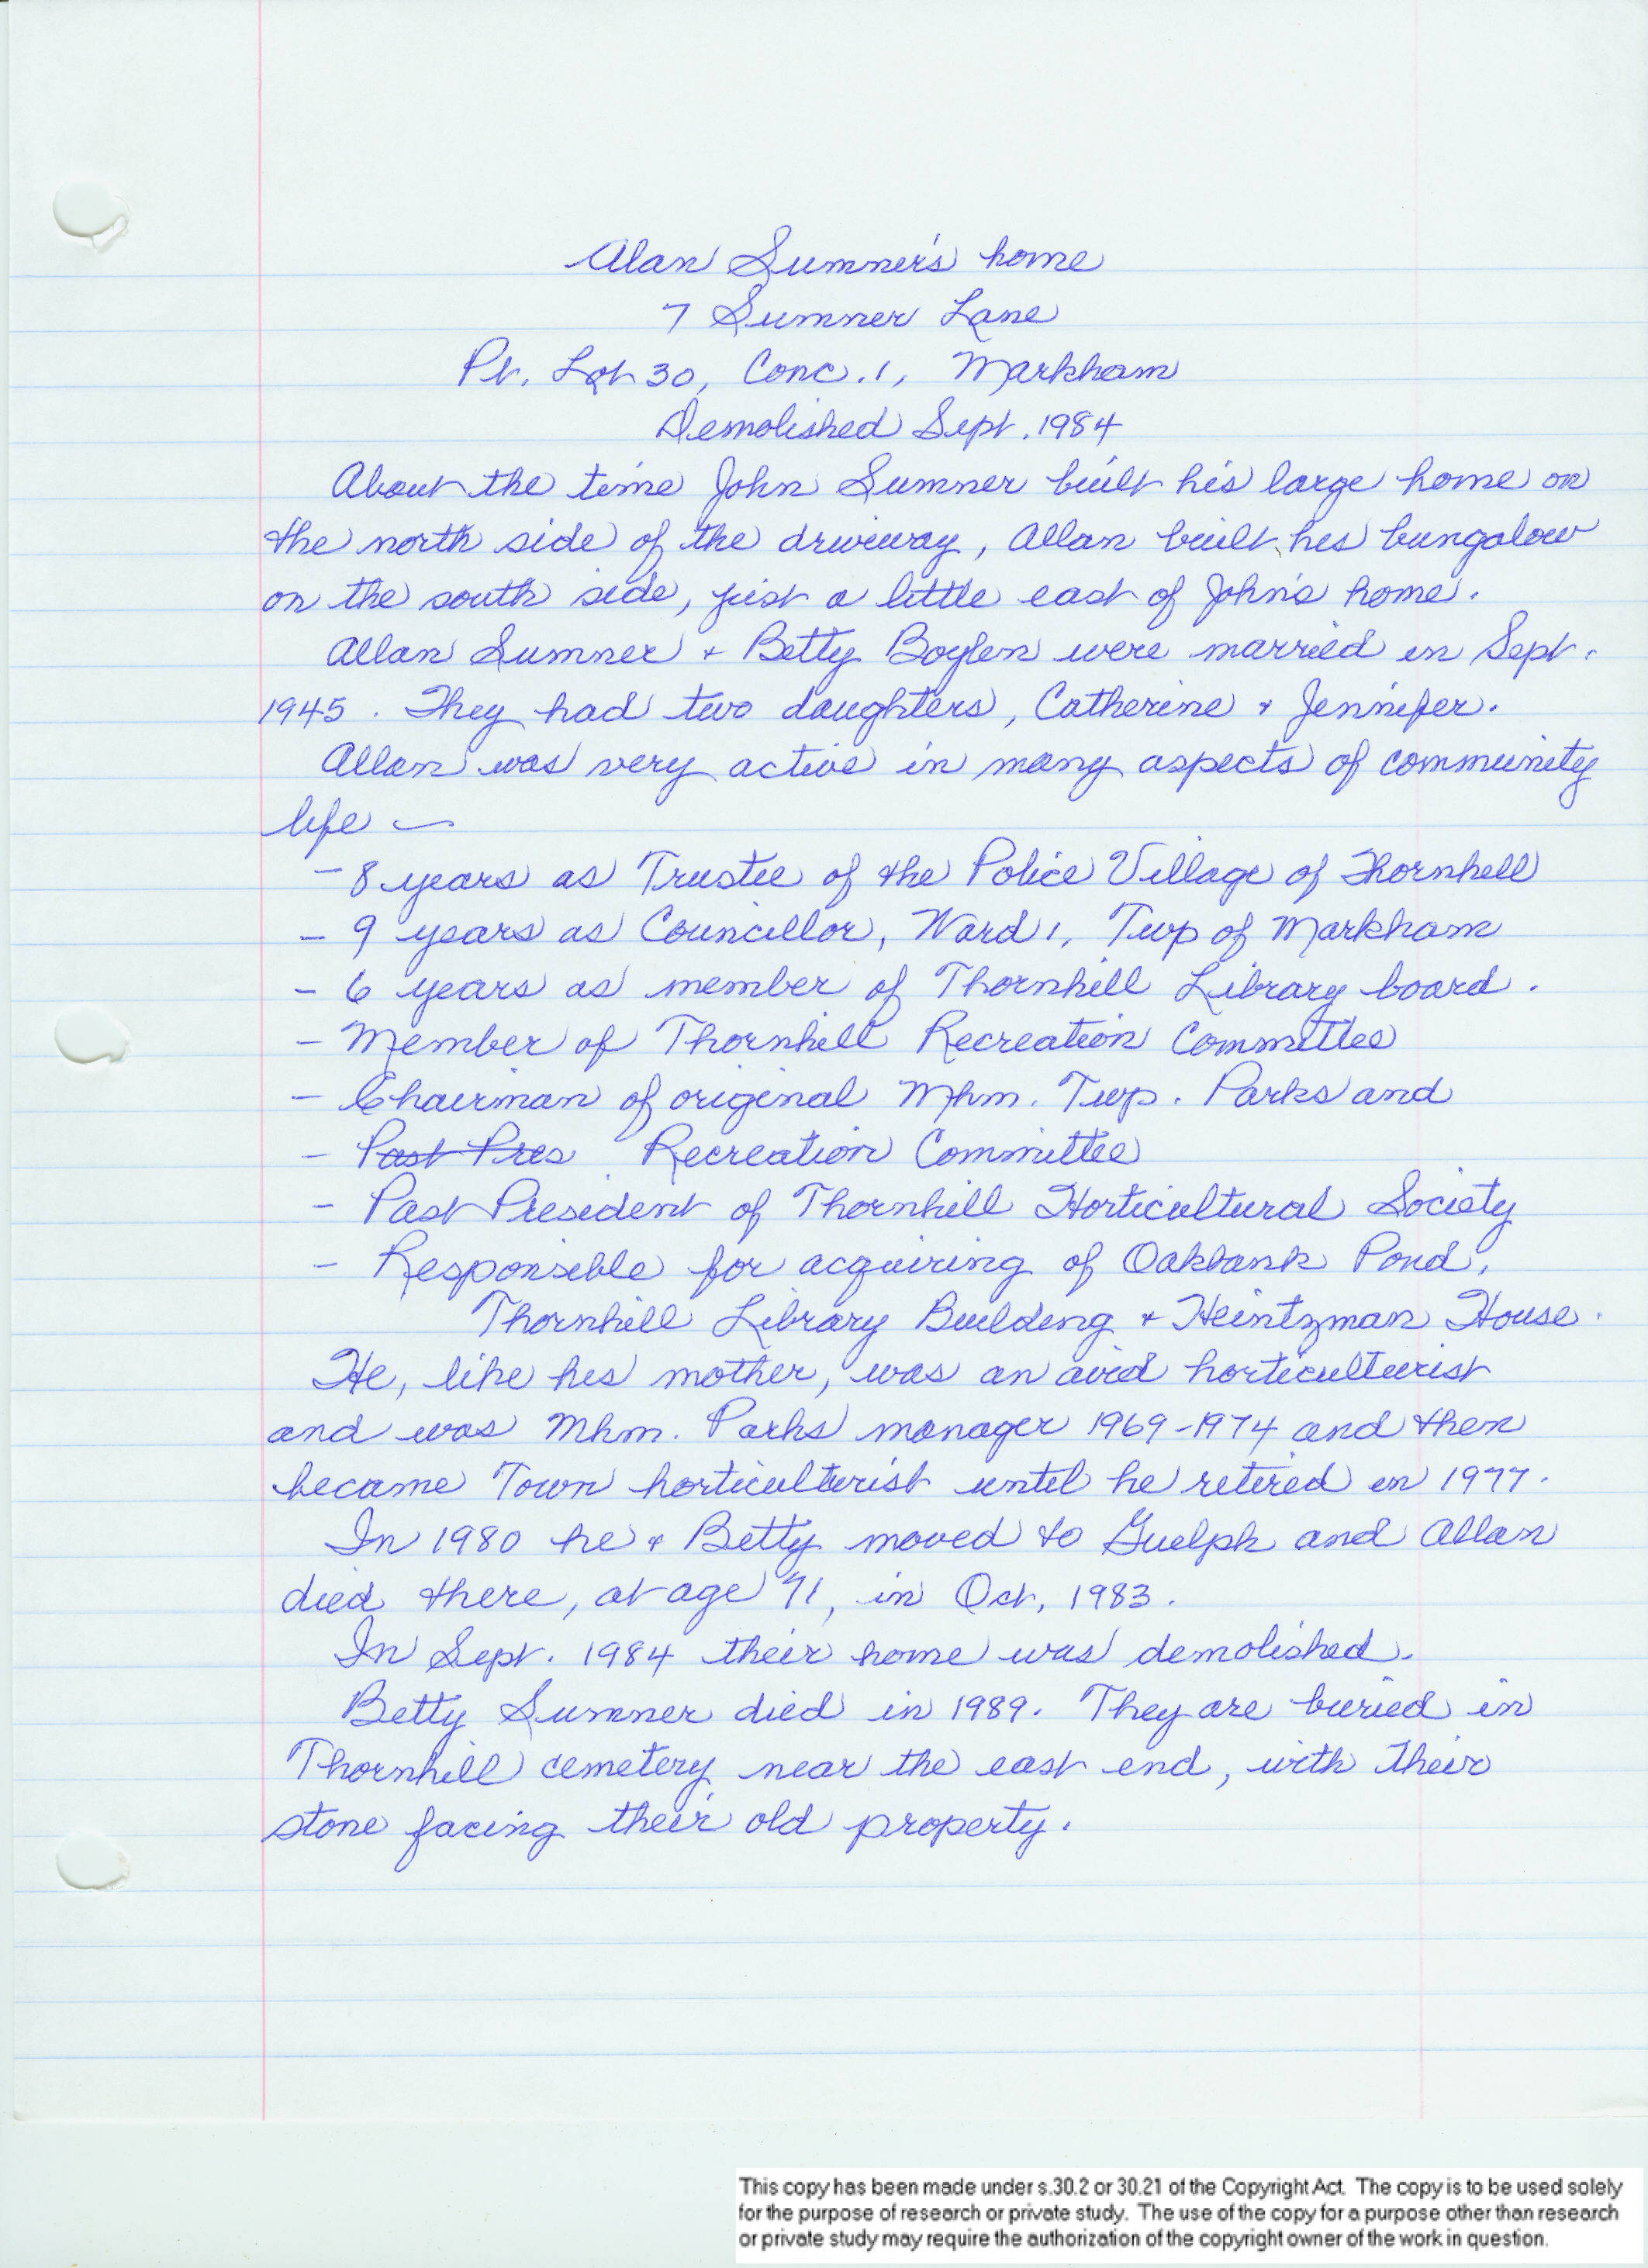 Alan Sumner's home
7 Sumner Lane
Pt. Lot 30, Conc. 1, Markham
Demolished Sept. 1984
About the time John Sumner built his large home on
the north side of the driveway, Allan built his bungalow
on the south side, just a little east of John's home.
Allan Sumner + Betty Boylen were married in Sept.
1945. They had two daughters, Catherine + Jennifer.
Allan was very active in many aspects of community
life —
- 8 years as Trustee of the Police Village of Thornhill
- 9 years as Councillor, Ward 1, Twp of Markham
- 6 years as member of Thornhill Library board.
- Member of Thornhill Recreation Committee
- Chairman of original Mhm. Twp. Parks and
- Past Pres Recreation Committee
- Past President of Thornhill Horticultural Society
- Responsible for acquiring of Oakbank Pond,
Thornhill Library Building + Heintzman House.
He, like his mother, was an avid horticulturist
and was Mhm. Parks manager 1969-1974 and then
became Town horticulturist until he retired in 1977.
In 1980 he + Betty moved to Guelph and Allan
died there, at age 71, in Oct, 1983.
In Sept. 1984 their home was demolished.
Betty Sumner died in 1989. They are buried in
Thornhill cemetery near the east end, with their
stone facing their old property.
This copy has been made under s.30.2 or 30.21 of the Copyright Act. The copy is to be used solely
for the purpose of research or private study. The use of the copy for a purpose other than research
or private study may require the authorization of the copyright owner of the work in question.